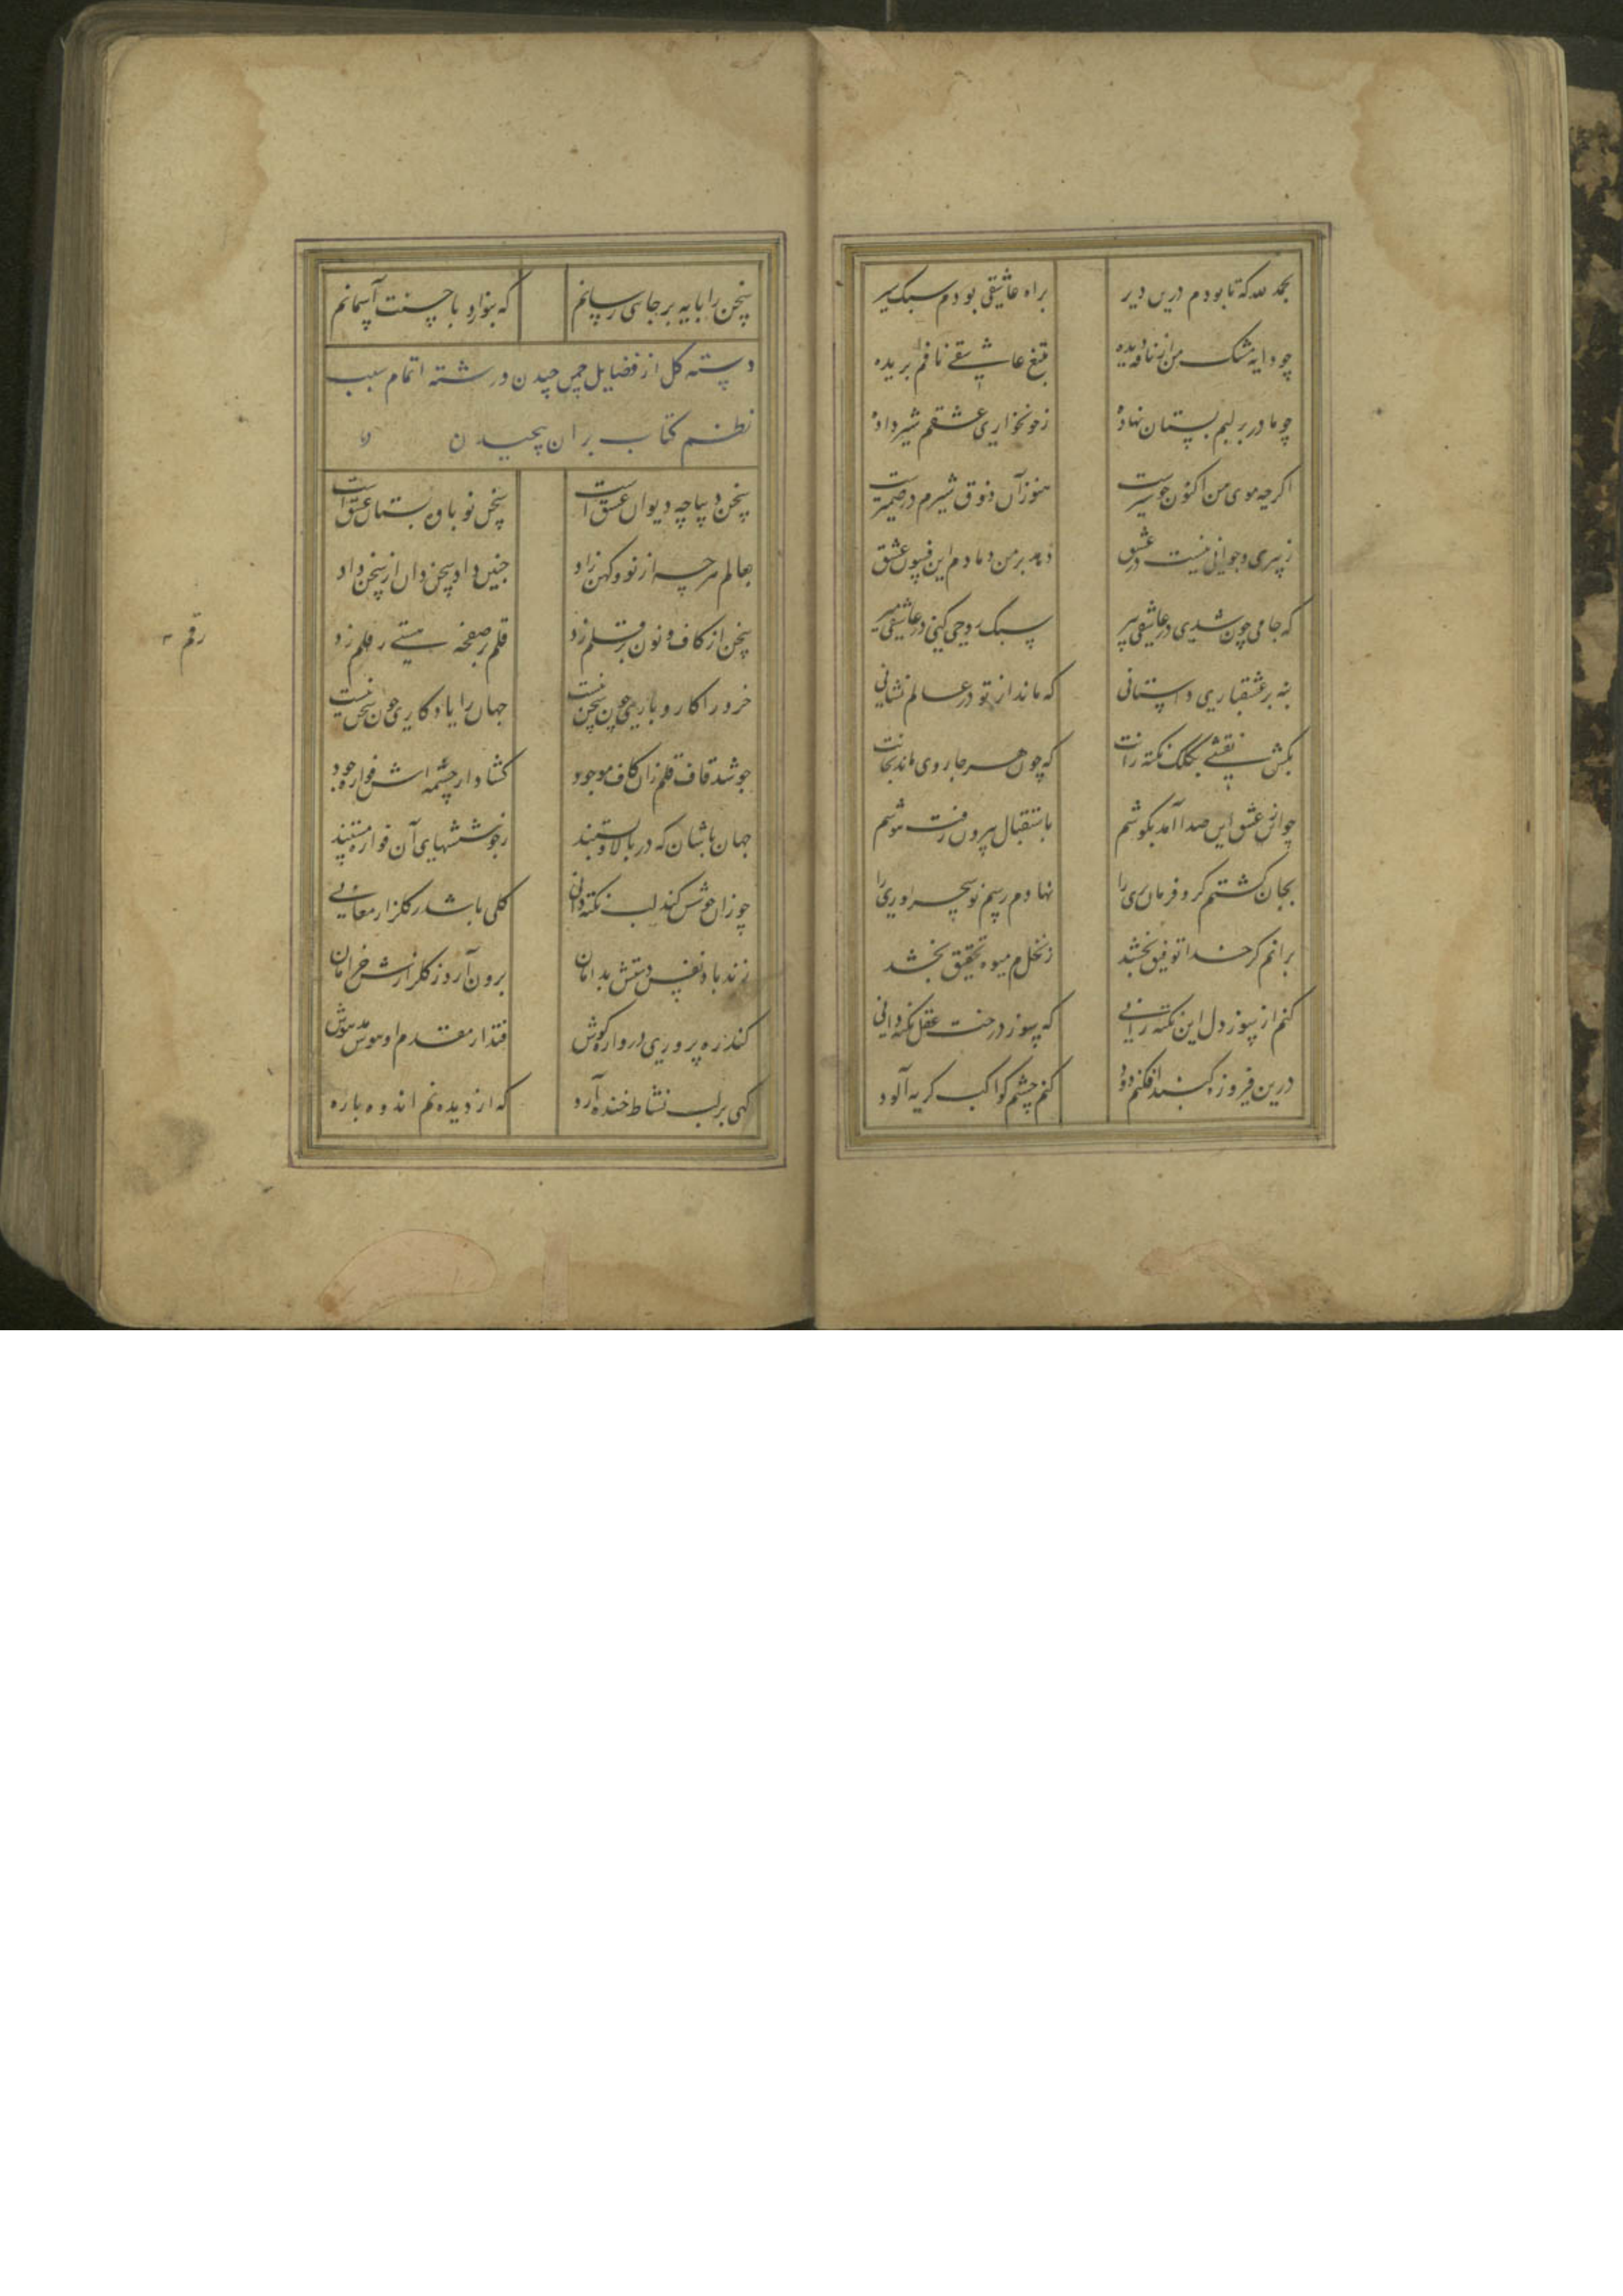 بحمد لله که تا بودم درین دیر براه عاشقی بودم سبک سیر
چو دایه مشک من نافه دیده بتیغ عاشقی نافم بریده
چو مادر بر لبم پستان نهاده ز خونخواری عشقم شیر داده
اگرچه موی من اکنون چو شیرست هنوز آن ذوق شیرم در ضمیرست
ز پیری و جوانی نیست در عشق دمد بر من دمادم این فسون عشق
که جامی چون شدی در عاشقی پیر سبک روحی کن و در عاشقی میر
بنه بر عشقبازی داستانی که ماند از تو در عالم نشانی
بکش نقشی بکلک نکته زانت که چون هر جا روی ماند بجانت
چو از عشق این صدا آمد بگوشم باستقبال بیرون رفت هوشم
بجان گشتم گرو فرمان بری را نهادم رسم نو سحر اوری را
برانم گر خدا توفیق بخشد ز نخلم میوه تحقیق بخشد
کنم از سوز دل این نکته رانی که سوزد رخت عقل نکته دانی
درین فیروزه گنبد افکنم دود کنم چشم کواکب گریه آلود
سخن را پایه بر جای رسانم که بنوازد باحسنت آسمانم
دسته گل از فضایل چمن چیدن و رشته اتمام سبب
نظم کتاب بر ان پیچیدن
سخن دیباچه دیوان عشق است سخن نوباوه بستان عشق است
بعالم هرچه از نو و کهن زاد چنین داد سخن دان از سخن داد
سخن از کاف و نون دم بر قلم زد قلم بر صفحه هستی رقم زد
خرد را کار و باری چون سخن نیست جهان را یادگاری چون سخن نیست
چو شد قاف قلم زان کاف موجود گشاد از چشمه اش فواره جود
جهان باشان که در بالا و پستند ز جوششهای آن فواره مستند
چو زان جوشش کند لب نکته دانی گلی باشد ز گلزار معانی
زند باد نفس دستش بدامان برون آرد ز گلزارش خرامان
کند ره پروری دروازه گوش فتد از مقدم او هوش مدهوش
گهی بر لب نشاط خنده آرد که از دیده نم اندوه باره
رقم ۳